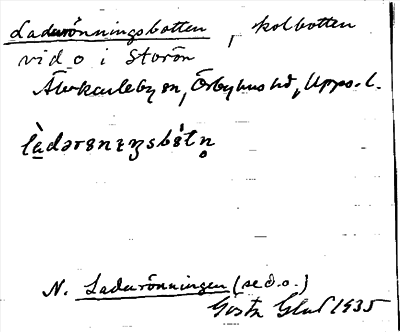 Laduрönningsbotten, kolbotten
vid o i Storön
Älvkarleby sn, Örbyhus hd, Upps. l.
lὰdərɞnɪŋsbɞ́tn̥
N. Ladurönningen (se d.o.)
Gösta Glad 1935